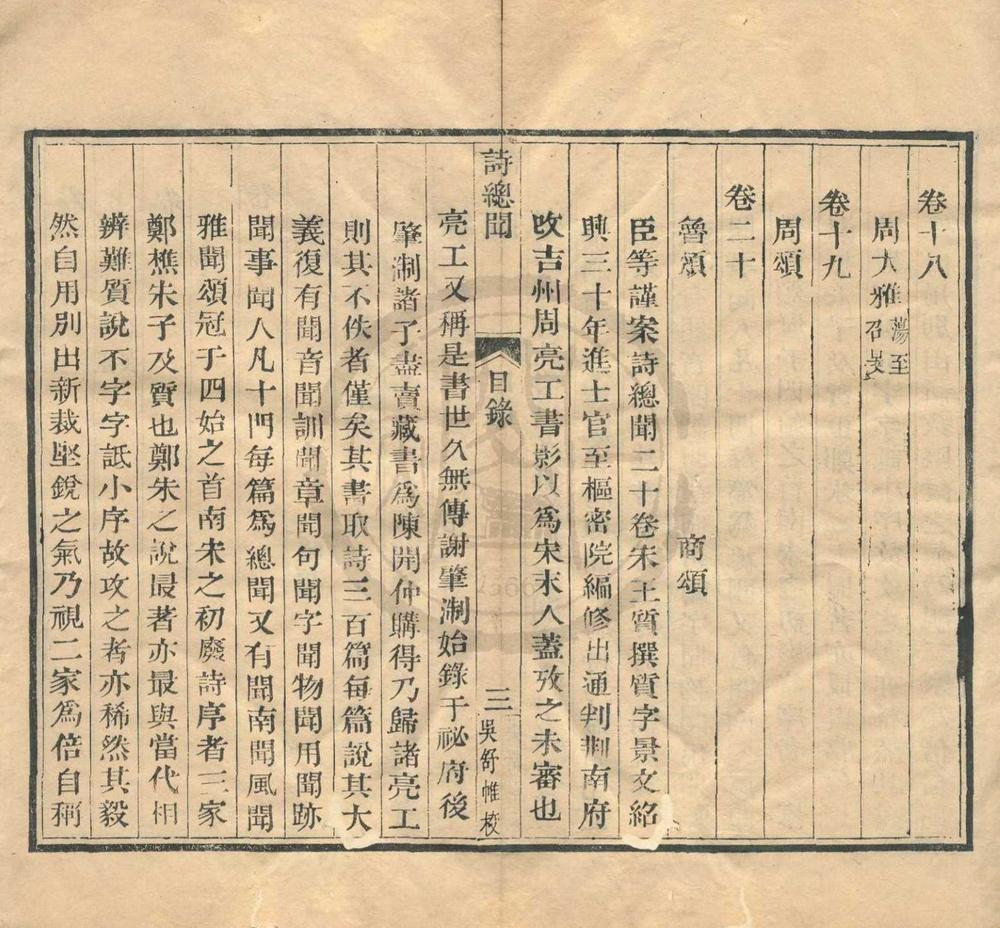 卷十八
周大雅蕩至召旻
卷十九
周頌
卷二十
魯頌 商頌
臣等謹案詩總聞二十卷宋王質撰質字景文紹
興三十年進士官至樞密院編修出通判荆南府
改吉州周亮工書影以爲宋末人蓋攷之未審也
詩總聞 目錄 三 吳舒帷校
亮工又稱是書世久無傳謝肇淛始錄于祕府後
肇淛諸子盡賣藏書爲陳開仲購得乃歸諸亮工
則其不佚者僅矣其書取詩三百篇每篇說其大
義復有聞音聞訓聞章聞句聞字聞物聞用聞跡
聞事聞人凡十門每篇爲總聞又有聞南聞風聞
雅聞頌冠于四始之首南宋之初廢詩序者三家
鄭樵朱子及質也鄭朱之說最著亦最與當代相
辨難質說不字字詆小序故攻之者亦稀然其毅
然自用別出新裁堅銳之氣乃視二家爲倍自稱